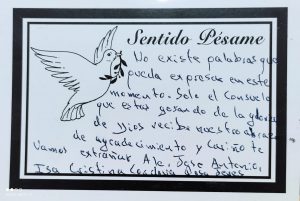 Sentido Pésame
No existe palabras que
pueda expresar en este
momento. Solo el Consuelo
que estas gozando de la gloria
de Dios recibe nuestro abrazo
de agradecimiento y cariño te
Vamos extrañar Ale, Jose Antonio,
Isa Cristina Rosa